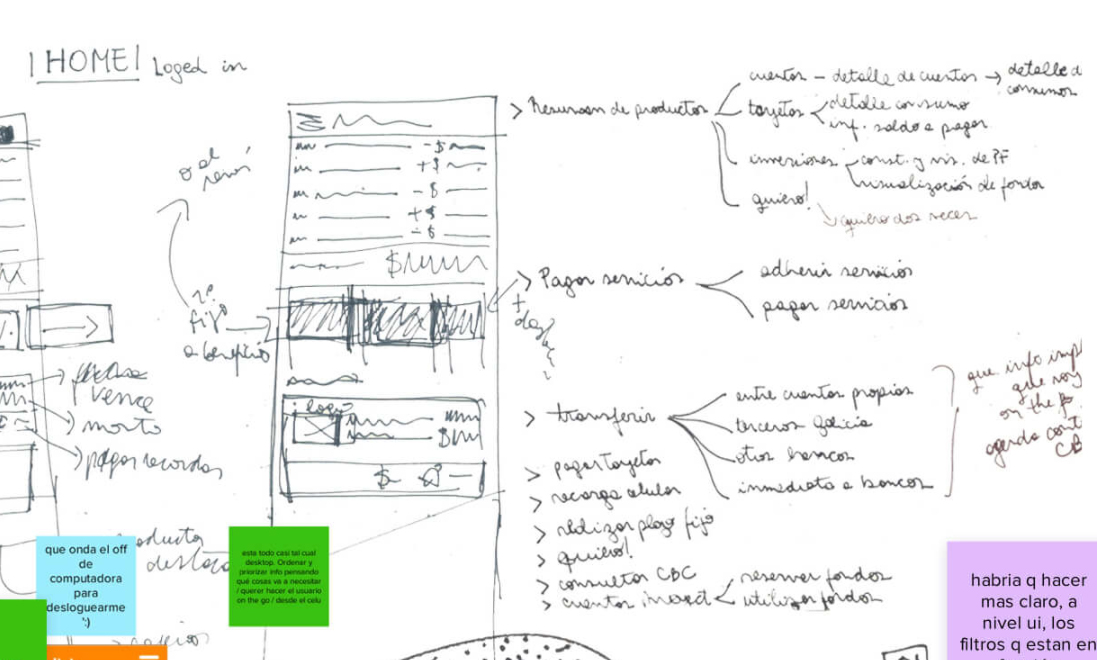 HOME Loged in
> Resumen de productos
cuentas - detalle de cuentas → detalle d
consumos
tarjetas
detalle consumo
inf. saldo a pagar
inversiones
const. y vis. de PF
visualización de fondos
quiero!
quiero dos veces
o el
fijo
a beneficio
> Pagar servicios
adherir servicios
pagar servicios
> transferir
entre cuentas propias
terceros galicia
otros bancos
inmediata a bancos
que info imp
que voy
on the
agenda cont
CB
> pagar tarjetas
> recarga celular
> realizar plazo fijo
> quiero!
> consultar CBC
> cuentas
reservar fondos
utilizar fondos
vence
monto
logo
que onda el off
de
computadora
para
desloguearme
':)
esta todo casi tal cual
desktop. Ordenar y
priorizar info pensando
qué cosas va a necesitar
/ querer hacer el usuario
on the go / desde el celu
habria q hacer
mas claro, a
nivel ui, los
filtros q estan en